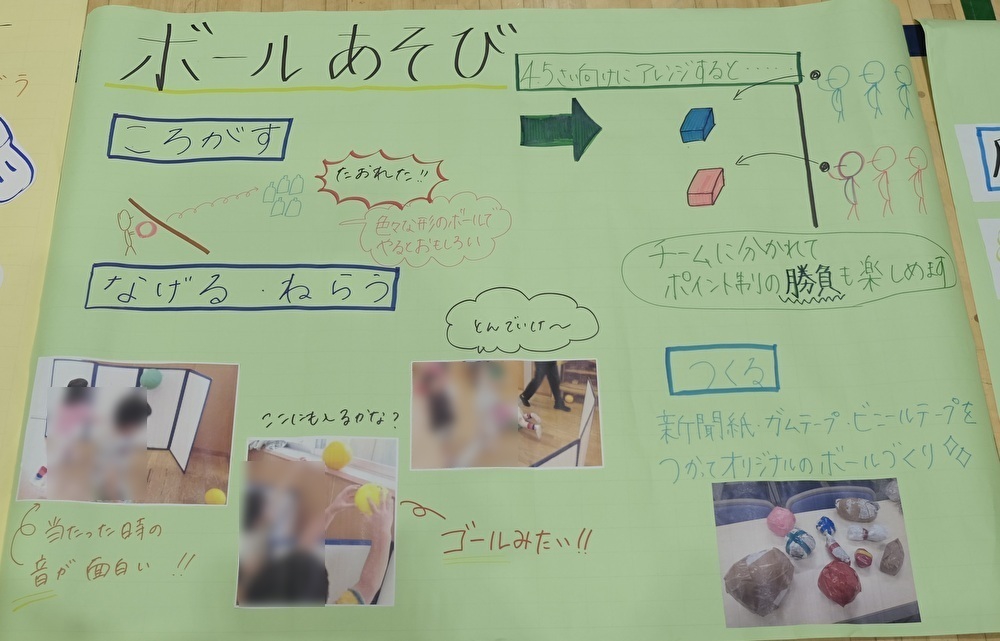 ボールあそび
ころがす
たおれた!!
色々な形のボールで
やるとおもしろい
なげる・ねらう
とんでいけ〜
ここにも入るかな?
当たった時の
音が面白い!!
ゴールみたい!!
4.5さい向けにアレンジすると……
チームに分かれて
ポイント制の勝負も楽しめます
つくる
新聞紙・ガムテープ・ビニールテープを
つかってオリジナルのボールづくり